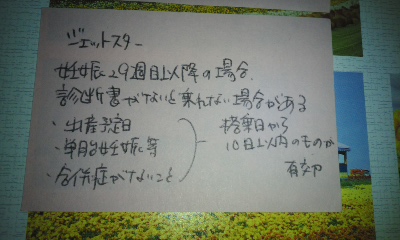 ジェットスター
妊娠29週目以降の場合、
診断書がないと乗れない場合がある
・出産予定日
・単胎妊娠等
・合併症がないこと
搭乗日から
10日以内のものが
有効